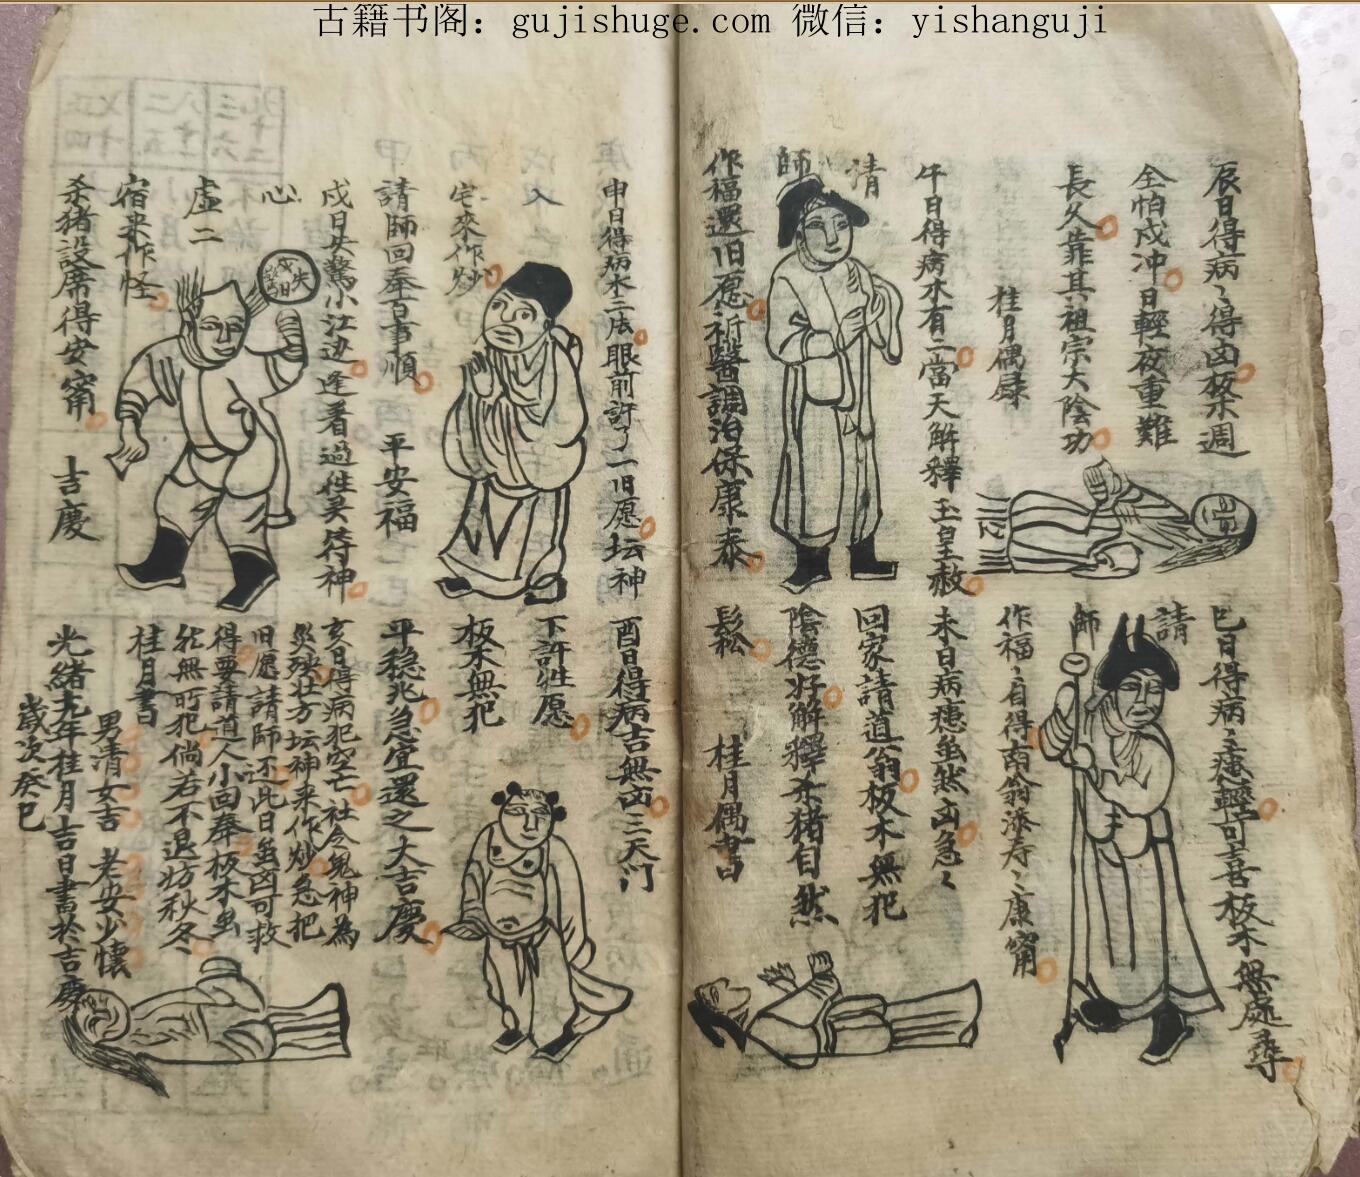 古籍书阁：gujishuge.com 微信：yishanguji
辰日得病〻得凶板禁週
全怕戍冲日輕夜重難
長久靠其祖宗大陰功
桂月偶録
午日得病木有二當天解釋玉皇赦
請
師
作福還旧愿祈醫調治保康泰
巳日得病〻症輕可喜板木無處尋
請
師
作福〻自得南翁添寿〻康甯
未日病患虽然凶急〻
回家請道翁板木無犯
陰德好解釋杀猪自然
鬆
桂月偶書
申日得病木二法眼前許了一旧愿坛神
入
宅來作炒
請師回奉百事順
平安福
戍日失驚小江边逢着過往吴待神
心
虚二
宿来作怪
杀猪設席得安甯
吉慶
戍日失驚
酉日得病吉無凶三天门
下許牲愿
板木無犯
平稳兆急宜還之大吉慶
亥日得病犯空亡社令鬼神為
災殃壮方坛神来作炒急把
旧愿請師还此日虽凶可救
得要請道人小回奉板木虽
然無所犯倘若不退妨秋冬
桂月書
男清女吉 老安少懷
光緒十九年桂月吉日書於吉慶
歲次癸巳